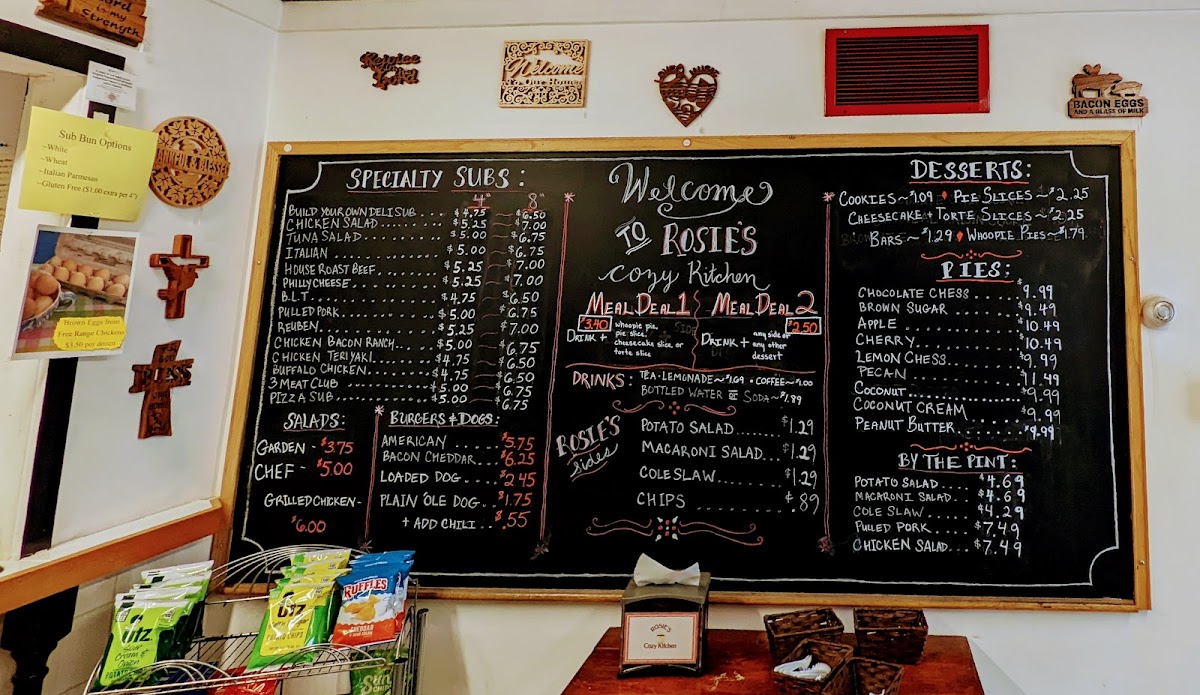 Lord
is my
Strength
Rejoice
in the
Lord
Welcome
To Our Home
BACON EGGS
AND A GLASS OF MILK
Sub Bun Options
~White
~Wheat
~Italian Parmesan
~Gluten Free ($1.00 extra per 4")
THANKFUL & BLESSED
Brown Eggs from
Free Range Chickens
$3.50 per dozen
BLESS
SPECIALTY SUBS:
4" 8"
BUILD YOUR OWN DELI SUB... $4.75 $6.50
CHICKEN SALAD... $5.25 $7.00
TUNA SALAD... $5.00 $6.75
ITALIAN... $5.00 $6.75
HOUSE ROAST BEEF... $5.25 $7.00
PHILLY CHEESE... $5.25 $7.00
B.L.T.... $4.75 $6.50
PULLED PORK... $5.00 $6.75
REUBEN... $5.25 $7.00
CHICKEN BACON RANCH... $5.00 $6.75
CHICKEN TERIYAKI... $4.75 $6.50
BUFFALO CHICKEN... $4.75 $6.50
3 MEAT CLUB... $5.00 $6.75
PIZZA SUB... $5.00 $6.75
SALADS:
GARDEN - $3.75
CHEF - $5.00
GRILLED CHICKEN -
$6.00
BURGERS & DOGS:
AMERICAN... $5.75
BACON CHEDDAR... $6.25
LOADED DOG... $2.45
PLAIN 'OLE DOG... $1.75
+ ADD CHILI... $.55
Welcome
TO ROSIE'S
Cozy Kitchen
MEAL DEAL 1
$3.40
DRINK +
whoopie pie,
pie slice,
cheesecake slice, or
torte slice
MEAL DEAL 2
$2.50
DRINK +
any side or
any other
dessert
DRINKS: TEA · LEMONADE~$1.09 · COFFEE~$1.00
BOTTLED WATER OR SODA~$1.89
ROSIE'S
sides
POTATO SALAD... $1.29
MACARONI SALAD... $1.29
COLE SLAW... $1.29
CHIPS $.89
DESSERTS:
COOKIES~$1.09 PIE SLICES~$2.25
CHEESECAKE + TORTE SLICES~$2.25
BARS~$1.29 WHOOPIE PIES~$1.79
PIES:
CHOCOLATE CHESS... $9.99
BROWN SUGAR... $9.49
APPLE... $10.49
CHERRY... $10.49
LEMON CHESS... $9.99
PECAN... $11.49
COCONUT... $9.99
COCONUT CREAM... $9.99
PEANUT BUTTER... $9.99
BY THE PINT:
POTATO SALAD... $4.69
MACARONI SALAD... $4.69
COLE SLAW... $4.29
PULLED PORK... $7.49
CHICKEN SALAD... $7.49
utz
Sour
Cream &
Onion
POTATO CHIPS
utz
POTATO CHIPS
RUFFLES
CHEDDAR
& SOUR CREAM
Sun
CHIPS
ROSIE'S
Cozy Kitchen